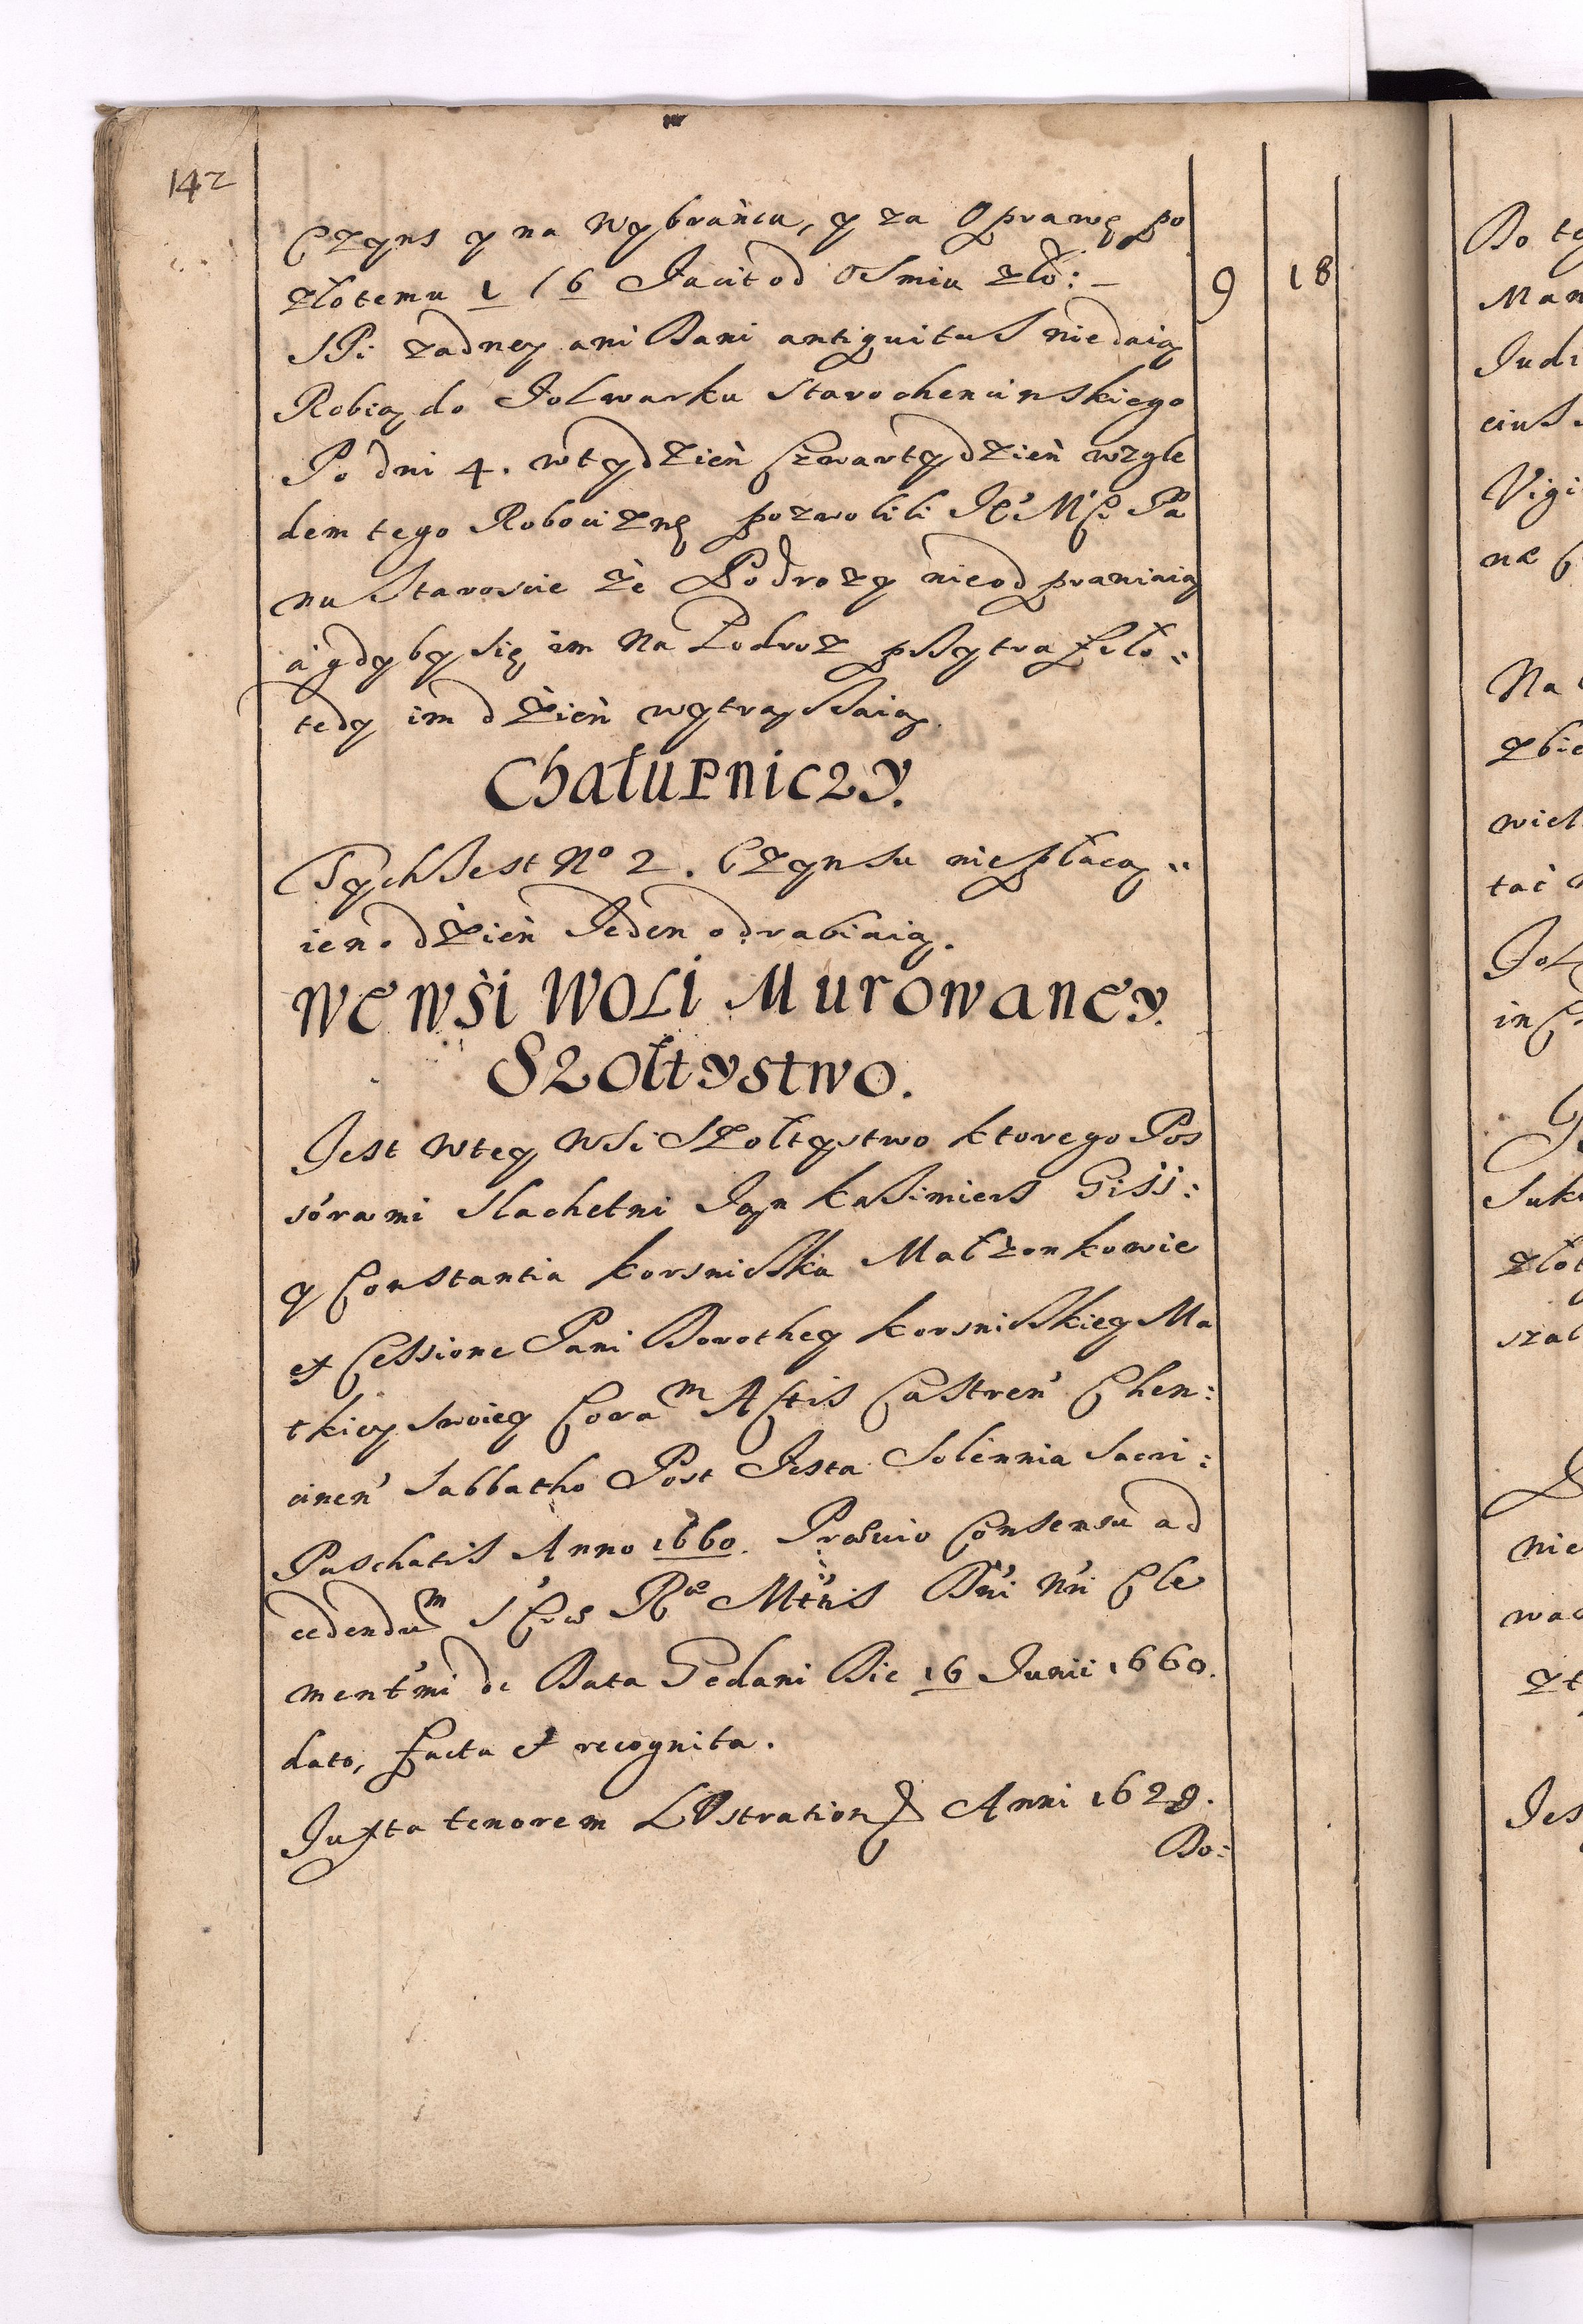 142
Czyns y na wybrańca, y za Oprawę po
złotemu 1 / 6 Facit od osmiu zło: – 9 18
żadney ani Dani antiquitus niedaią
Robią do Folwarku Starochencinskiego
Po dni 4. wtydzień Czwartydzień wzgle
dem tego Robociznę pozwolili Je° M°C. Pa
nu Staroscie że Podrozy nieodprawiaią
á gdyby się im Na Podroz przytrafiło
tedy im dzień wytrąszaią.
Chałupniczy.
Tych Jest N° 2. Czynsu niepłacą
ieno dzień Jeden odrabiaią.
We Wsi Woli Murowaney.
Szołtystwo.
Jest wtey wsi Szołtystwo ktorego Pos
sorami Slachetni Jan Kasimiers Giss:
y Constantia Korsniska Małżonkowie
ex Cessione Pani Dorothey Korsniskiey Ma
tkiey swoiey Coram Actis Castren' Chen:
cinen' Sabbatho Post Festa Solennia Sacri:
Paschatis Anno 1660. Praevio Consensu ad
cedendum S° Crae Rae Mttis Dni Nri Cle
menttmi de Data Gedani Die 16 Junii 1660.
dato, facta et recognita.
Juxta tenorem Lustrationis Anni 1628.
Do:
Do
Man
eius
Vigi
Na
zbie
wiel
tać
in
zło
szal
nie
Jes